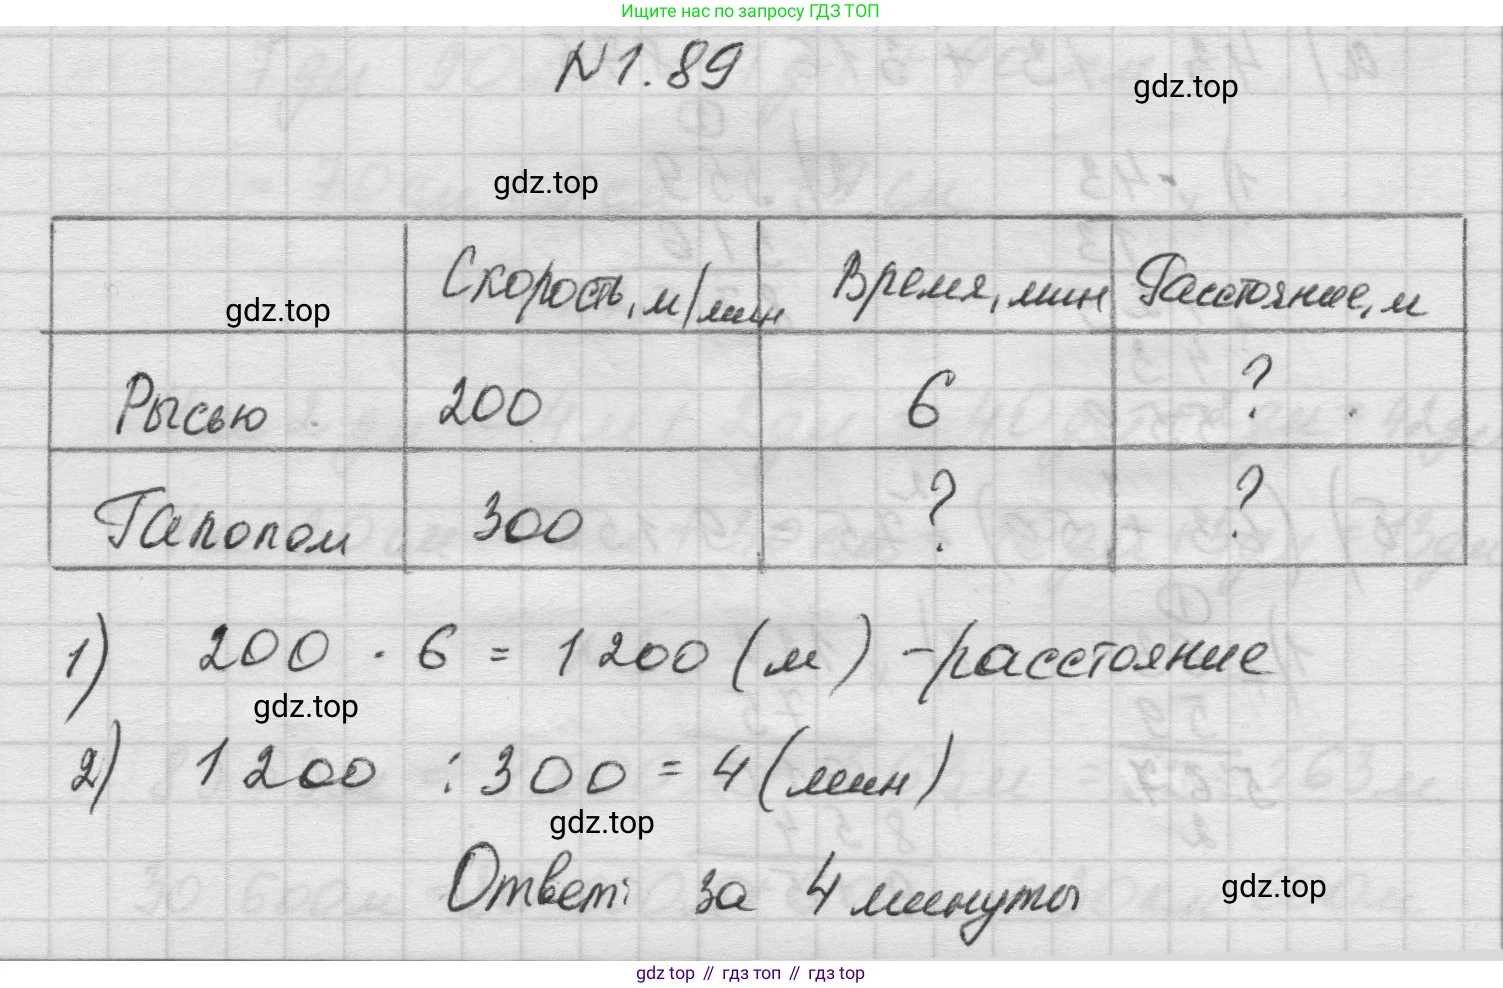 Ищите нас по запросу ГДЗ ТОП
N1.89
gdz.top
gdz.top
Скорость, м/мин Время, мин Расстояние, м
gdz.top
Рысью 200 6 ?
Галопом 300 ? ?
1) 200 · 6 = 1200 (м) - расстояние
gdz.top
2) 1200 : 300 = 4 (мин)
gdz.top
Ответ: за 4 минуты
gdz.top
gdz top // гдз топ // гдз top